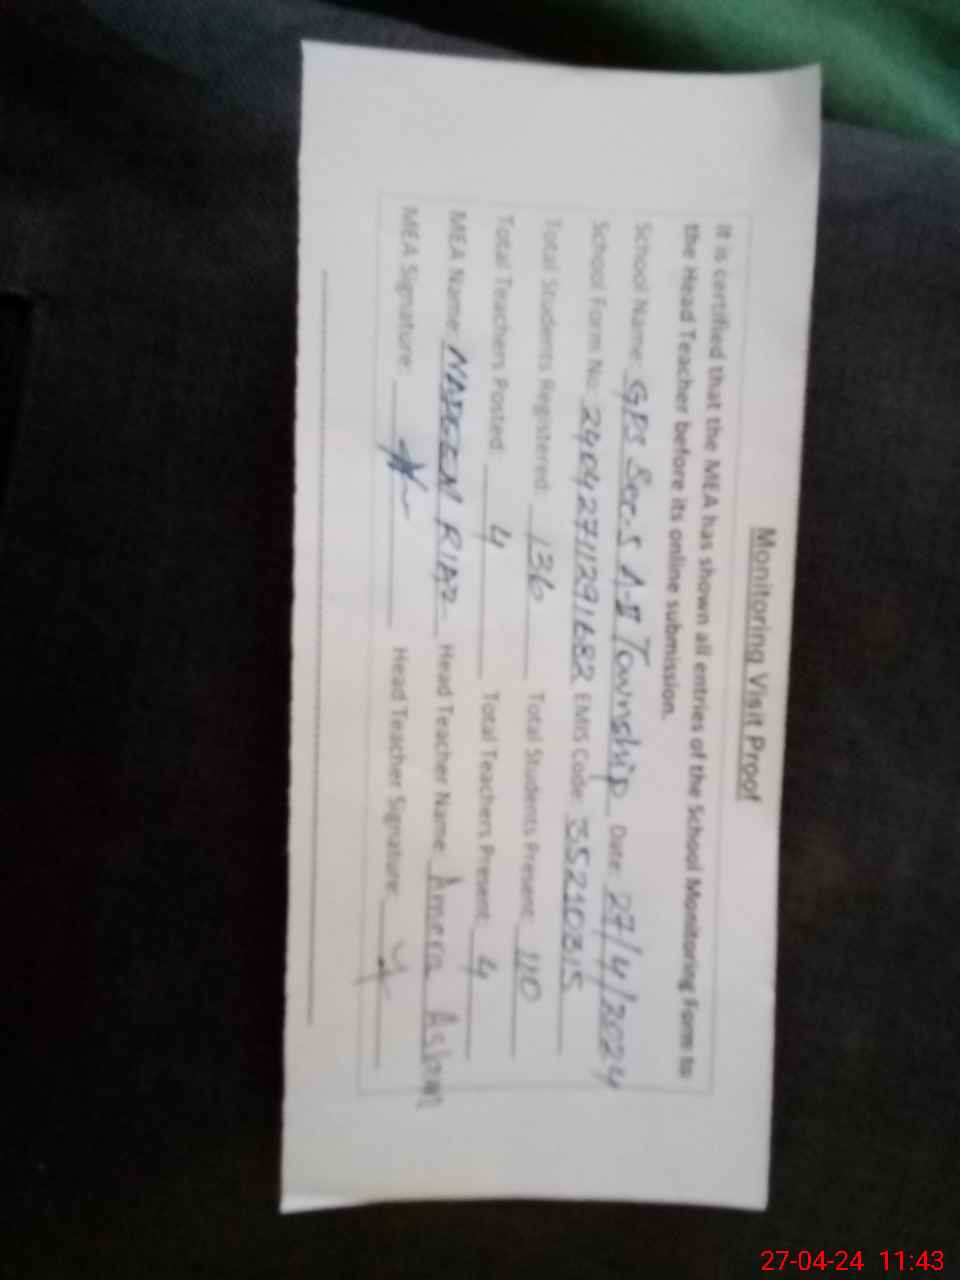 Monitoring Visit Proof
It is certified that the MEA has shown all entries of the School Monitoring Form to
the Head Teacher before its online submission.
School Name: GPS Sec-5 A-II Township Date: 27/4/2024
School Form No: 24042711291682 EMIS Code: 35210315
Total Students Registered: 136 Total Students Present: 110
Total Teachers Posted: 4 Total Teachers Present: 4
MEA Name: NADEEM RIAZ Head Teacher Name: Ameria Aslam
MEA Signature: Head Teacher Signature:
27-04-24 11:43